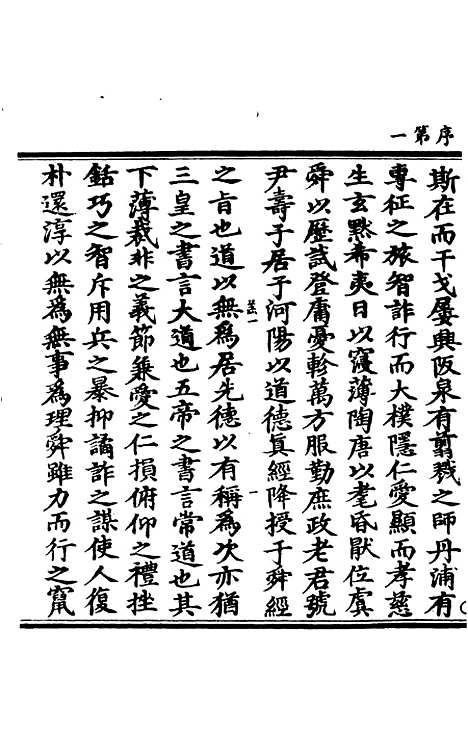 序第一
斯在而干戈屢興阪泉有翦戮之師丹浦有
專征之旅智詐行而大樸隱仁愛顯而孝慈
生玄黙希夷日以寖薄陶唐以耄昏猒位虞
舜以歷試登庸憂軫萬方服勤庶政老君號
尹壽子居于河陽以道德眞經降授于舜經
羔一
之旨也道以無爲居先德以有稱爲次亦猶
三皇之書言大道也五帝之書言常道也其
下薄裁非之義節兼愛之仁損俯仰之禮挫
銛巧之智斥用兵之暴抑譎詐之謀使人復
朴還淳以無爲無事爲理舜雖力而行之竄